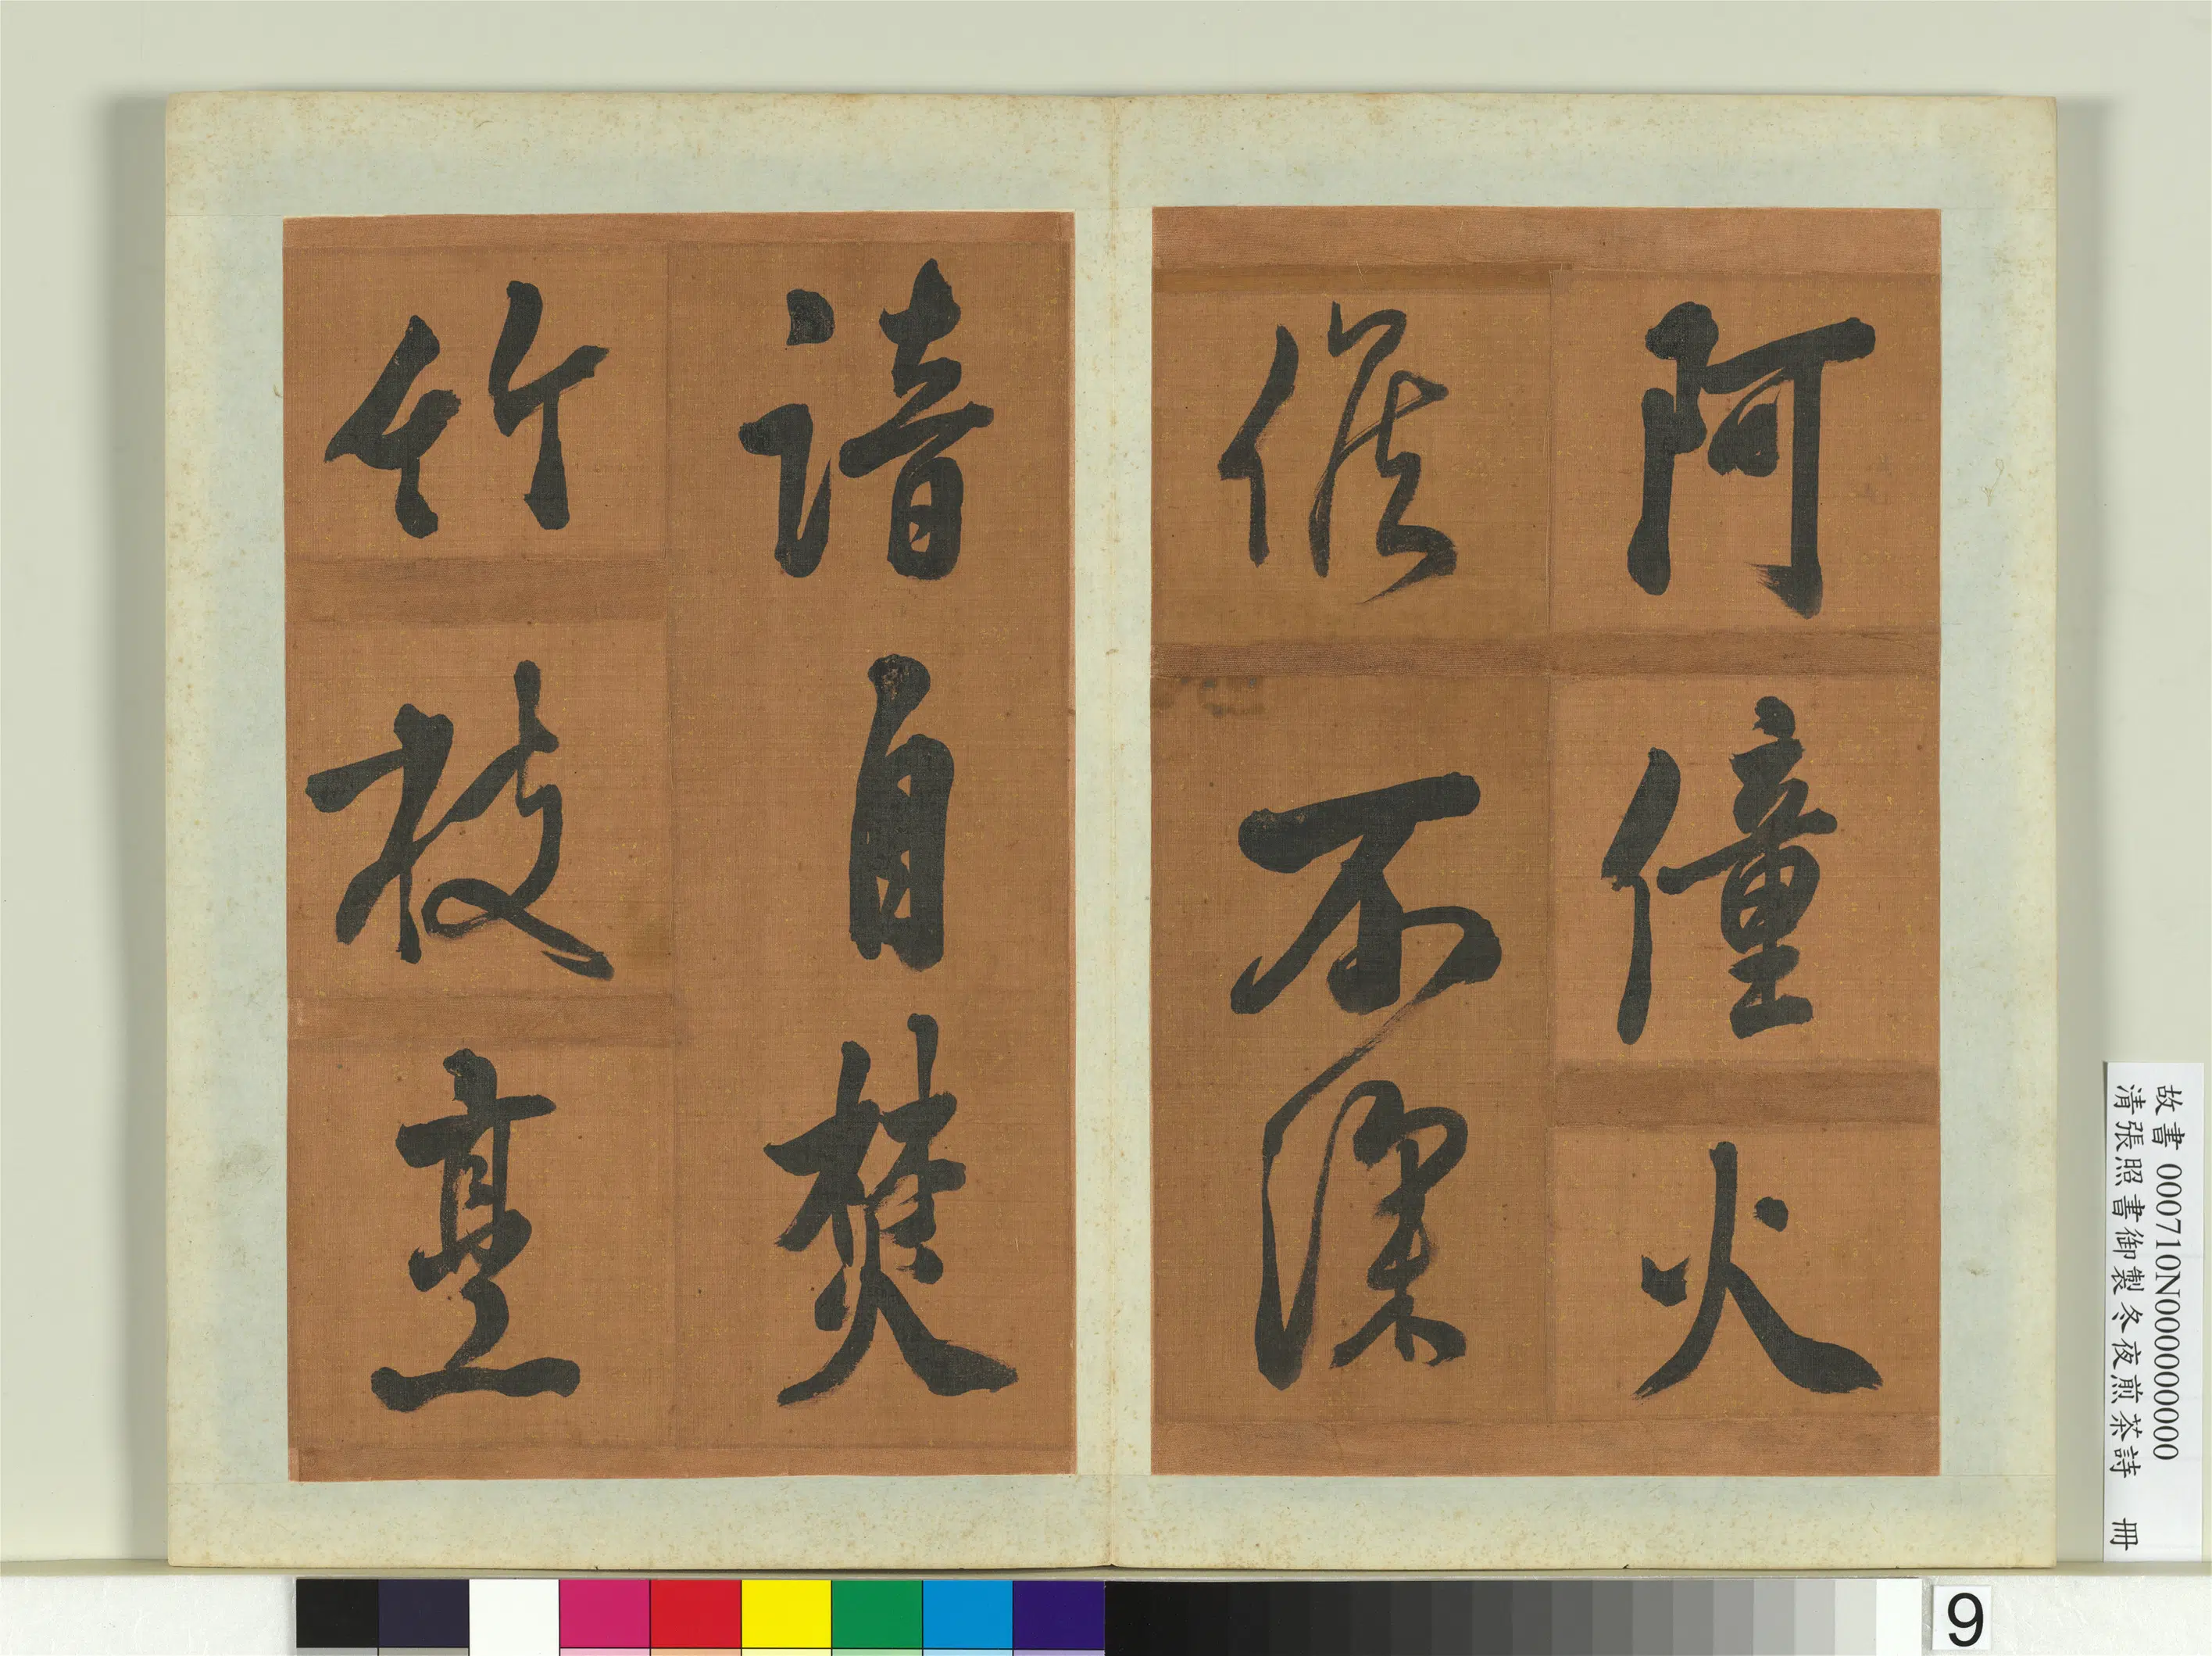 阿僮火
候不深
諳自焚
竹枝烹
故書 000710N000000000
清張照書御製冬夜煎茶詩 冊
9